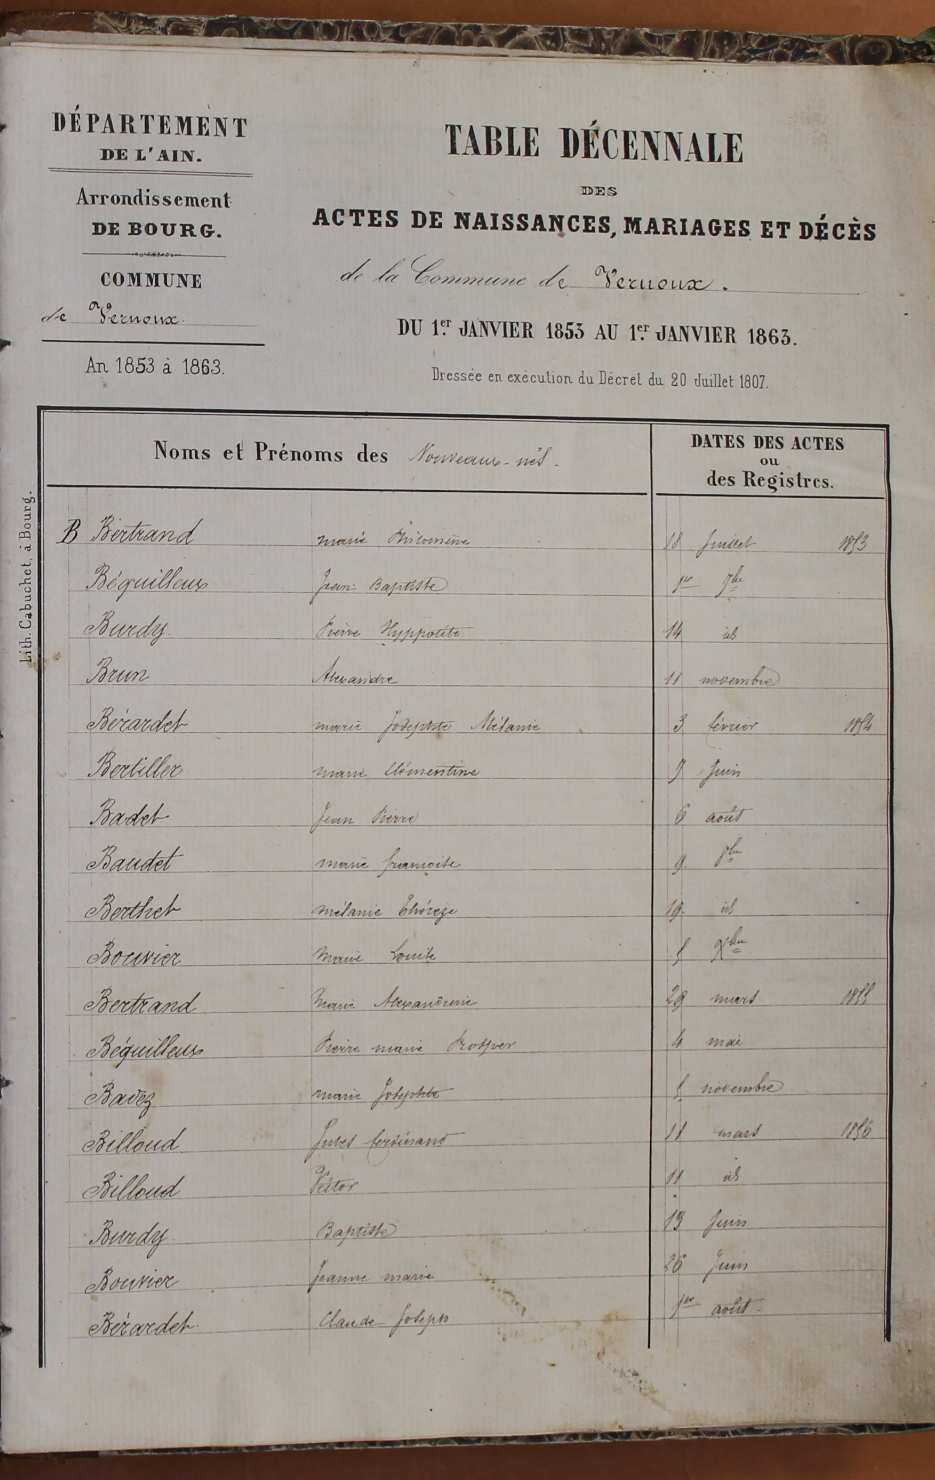 DÉPARTEMENT
DE L'AIN.
Arrondissement
DE BOURG.
COMMUNE
de Vernoux
An 1853 à 1863.
TABLE DÉCENNALE
DES
ACTES DE NAISSANCES, MARIAGES ET DÉCÈS
de la Commune de Vernoux.
DU 1er JANVIER 1853 AU 1er JANVIER 1863.
Dressée en exécution du Décret du 20 Juillet 1807.
Lith. Cabuchet, à Bourg.
Noms et Prénoms des Nouveaux-nés. DATES DES ACTES
ou
des Registres.
B Bertrand marie Philomène 18 Juillet 1853
Béguilleux Jean-Baptiste 1er 7bre
Burdy Pierre Hyppolite 14 id
Brun Alexandre 11 novembre
Bérardet marie Josephte Mélanie 3 février 1854
Bertiller marie Clémentine 9 Juin
Badet Jean Pierre 6 août
Baudet marie françoise 9 8bre
Berthet mélanie Thérèze 19 id
Bouvier Marie Louise 5 Xbre
Bertrand Marie Alexandrine 29 mars 1855
Béguilleux Pierre marie Prosper 4 mai
Badez marie Josephte 5 novembre
Billoud Jules ferdinand 11 mars 1856
Billoud Victor 11 id
Burdy Baptiste 13 Juin
Bouvier Jeanne marie 26 Juin
Bérardet Claude-Joseph 1er août